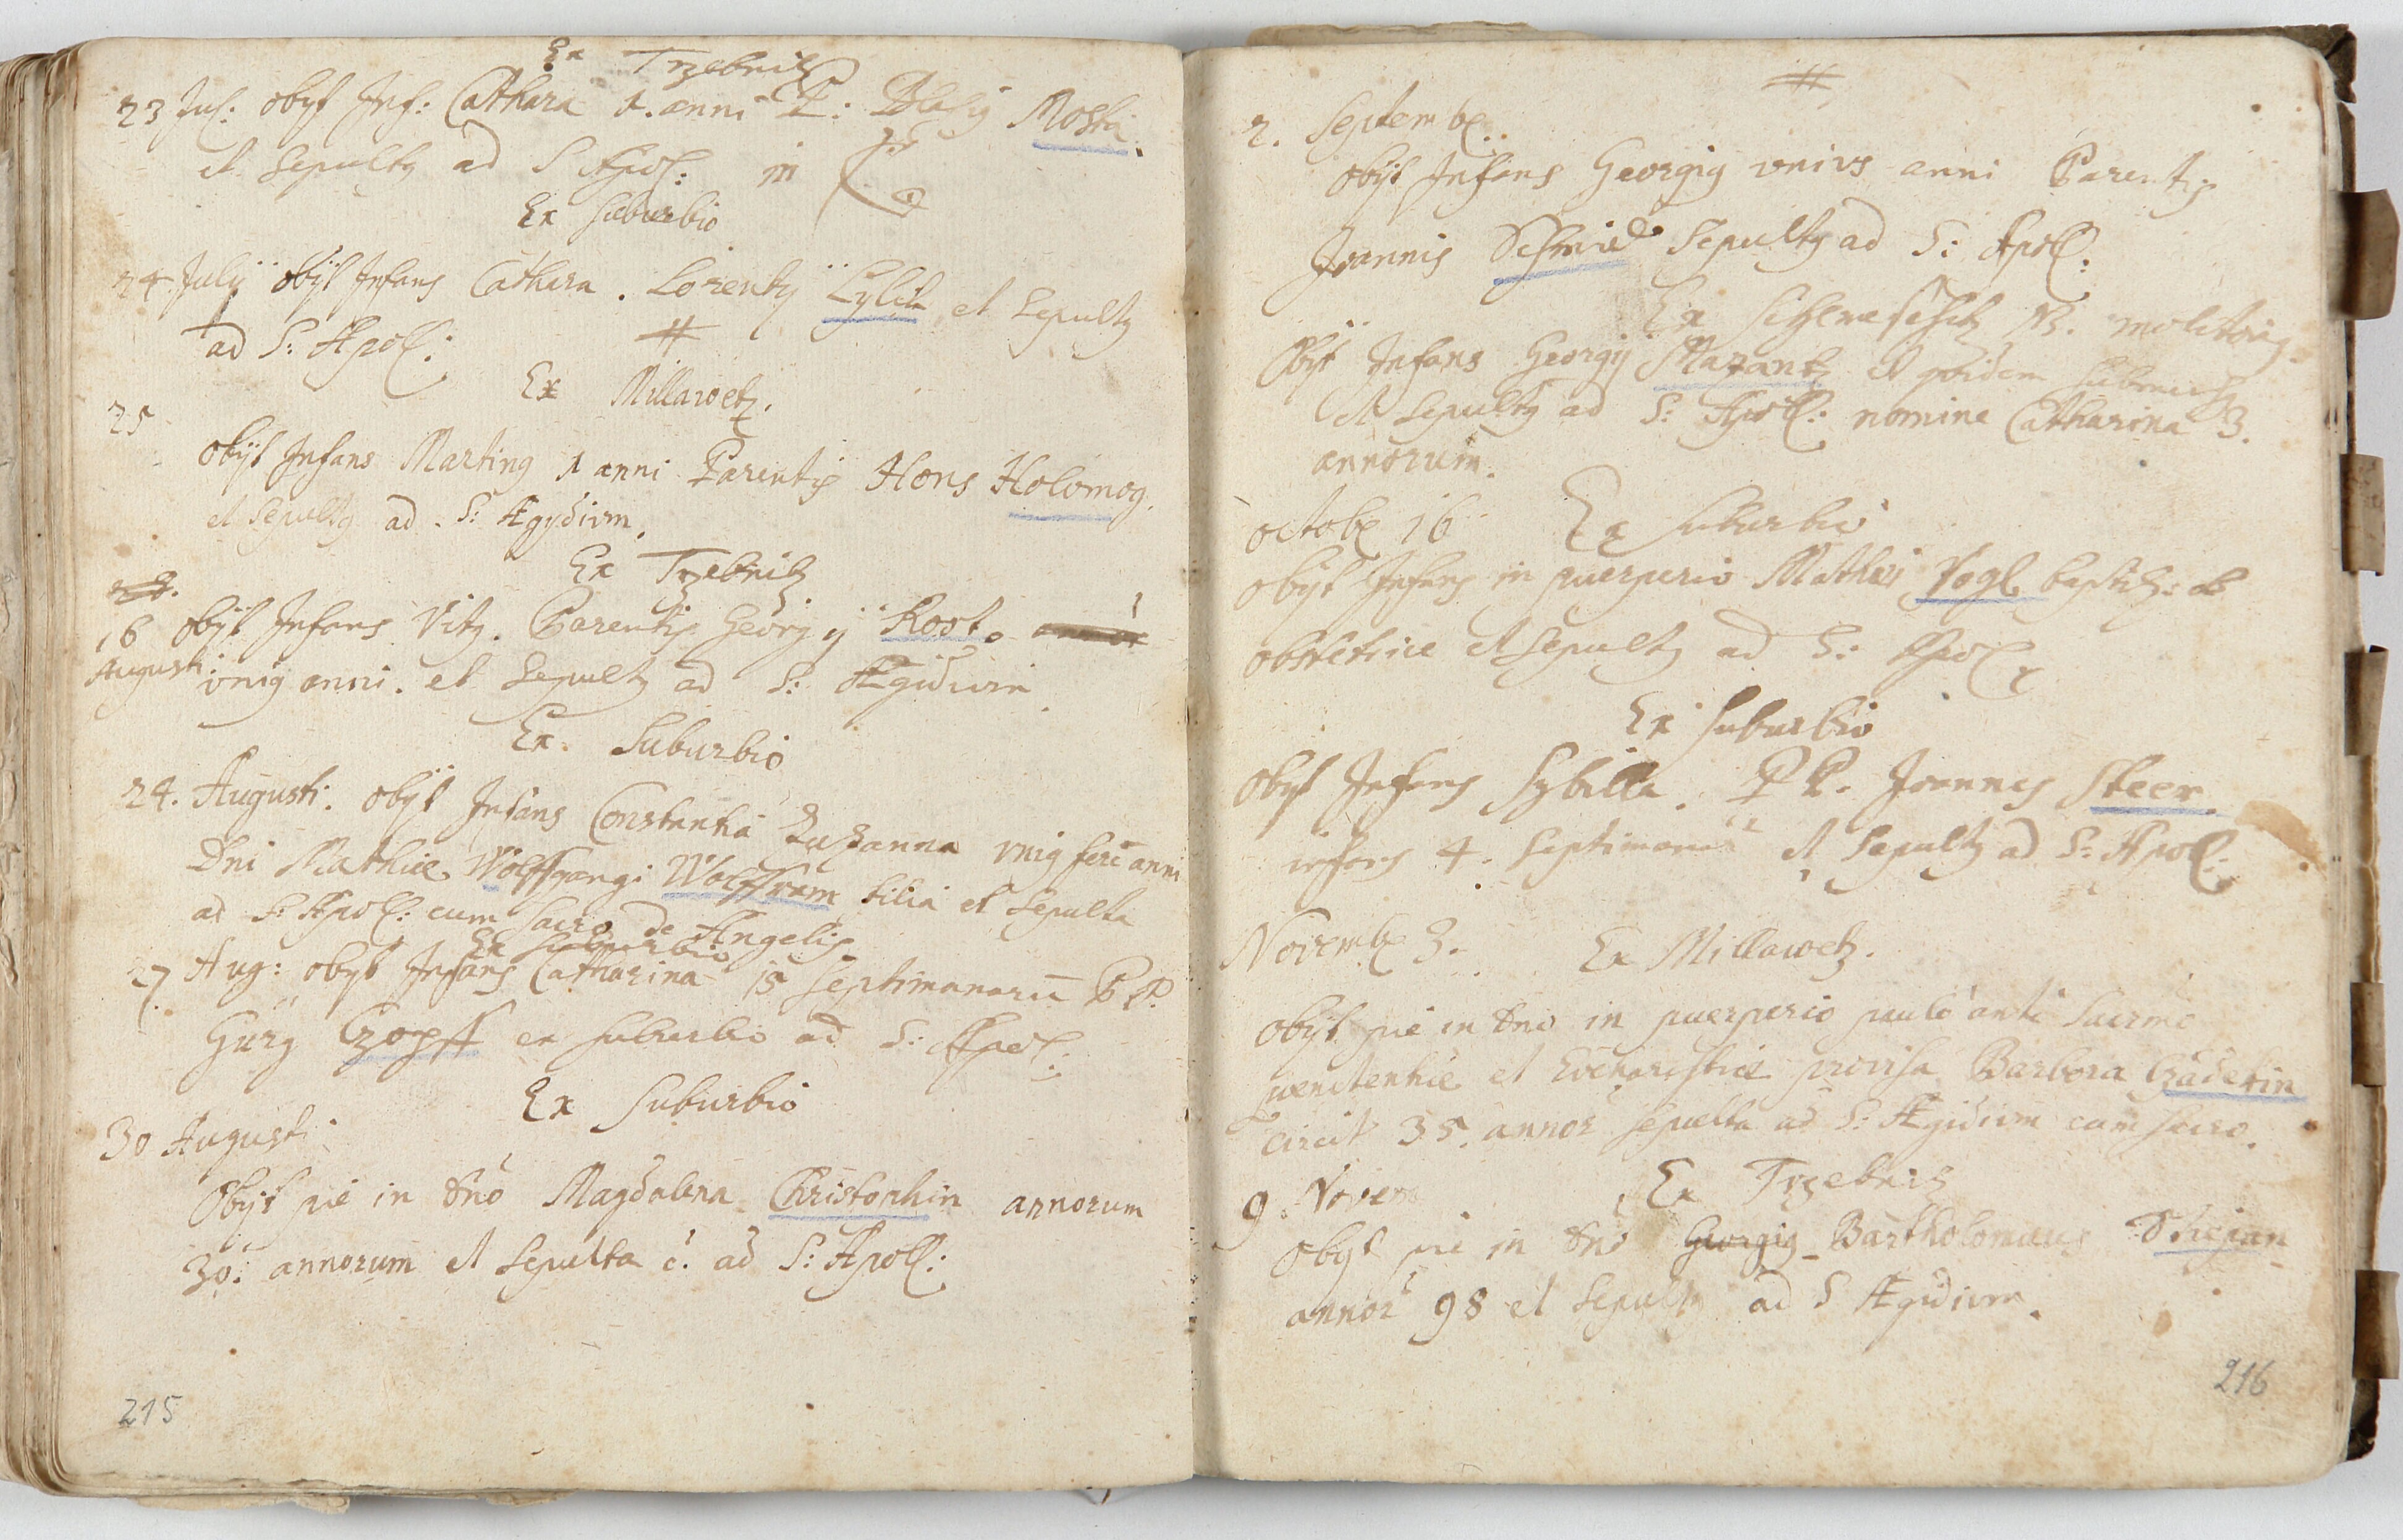 Ex Trzebnitz
23 Jul: obyt Inf: Cathara 1. anni P: Blasij Moska.
et sepultq ad S Apol: in
Ex suburbio
24. July obyt Infans Cathara. Lorentij Lylik et sepultq
ad S: Apoll:
Ex Millawetz.
25
obyt Infans Martinq 1 anni Parentis Hons Holomog.
et sepultq ad. S: Ægydium.
Ex Trzebnitz
16 obyt Infans Vitq. Parentis Georgij Kost.
Augusti vniq anni. et sepultq ad S: Ægidium
Ex Suburbio
24. Augusti. obyt Infans Constantia Zuzanna vniq ferè anni
Dni Mathiæ Wolffgangi Wolffram filia et sepulta
ad S: Apoll: cum sacro de Angelis
Ex suburbio
27 Aug: obyt Infans Catharina 15 septimanarū P P.
Gürg Czopff ex suburbio ad S: Apol:
Ex suburbio
30 Augusti
Obyt piè in dno Magdalena Christophin annorum
30. annorum et sepulta è. ad S: Apoll:
215
2. Septemb
obyt Infans Georgiq vnivs anni Parentis
Joannis Schmid sepultq ad S: Apoll:
Ex
Obyt Infans Georgij Mazantz et
et sepultq ad S: Apoll: nomine Catharina 3.
annorum.
octob 16 Ex suburbio
obyt Infans in puerperio Mathei Vogl
obstetrice et sepultq ad S: Apoll
Ex suburbio
obyt Infans Sybilla. P P. Joannes Steer.
infans 4. septimanarū et sepultq ad S: Apoll:
Novemb 3. Ex Millawetz.
obyt piè in dno in puerperio paulò antè sacrmo
penitentiæ et Evcharistiæ provisa Barbora Czadekin
circit 35. annor sepulta ad S: Ægidium cum sacro.
9. Novem Ex Trzebnitz
obyt piè in dno Georgiq Bartholomæus Stiepan
annor 98 et sepultq ad S Ægidium.
216